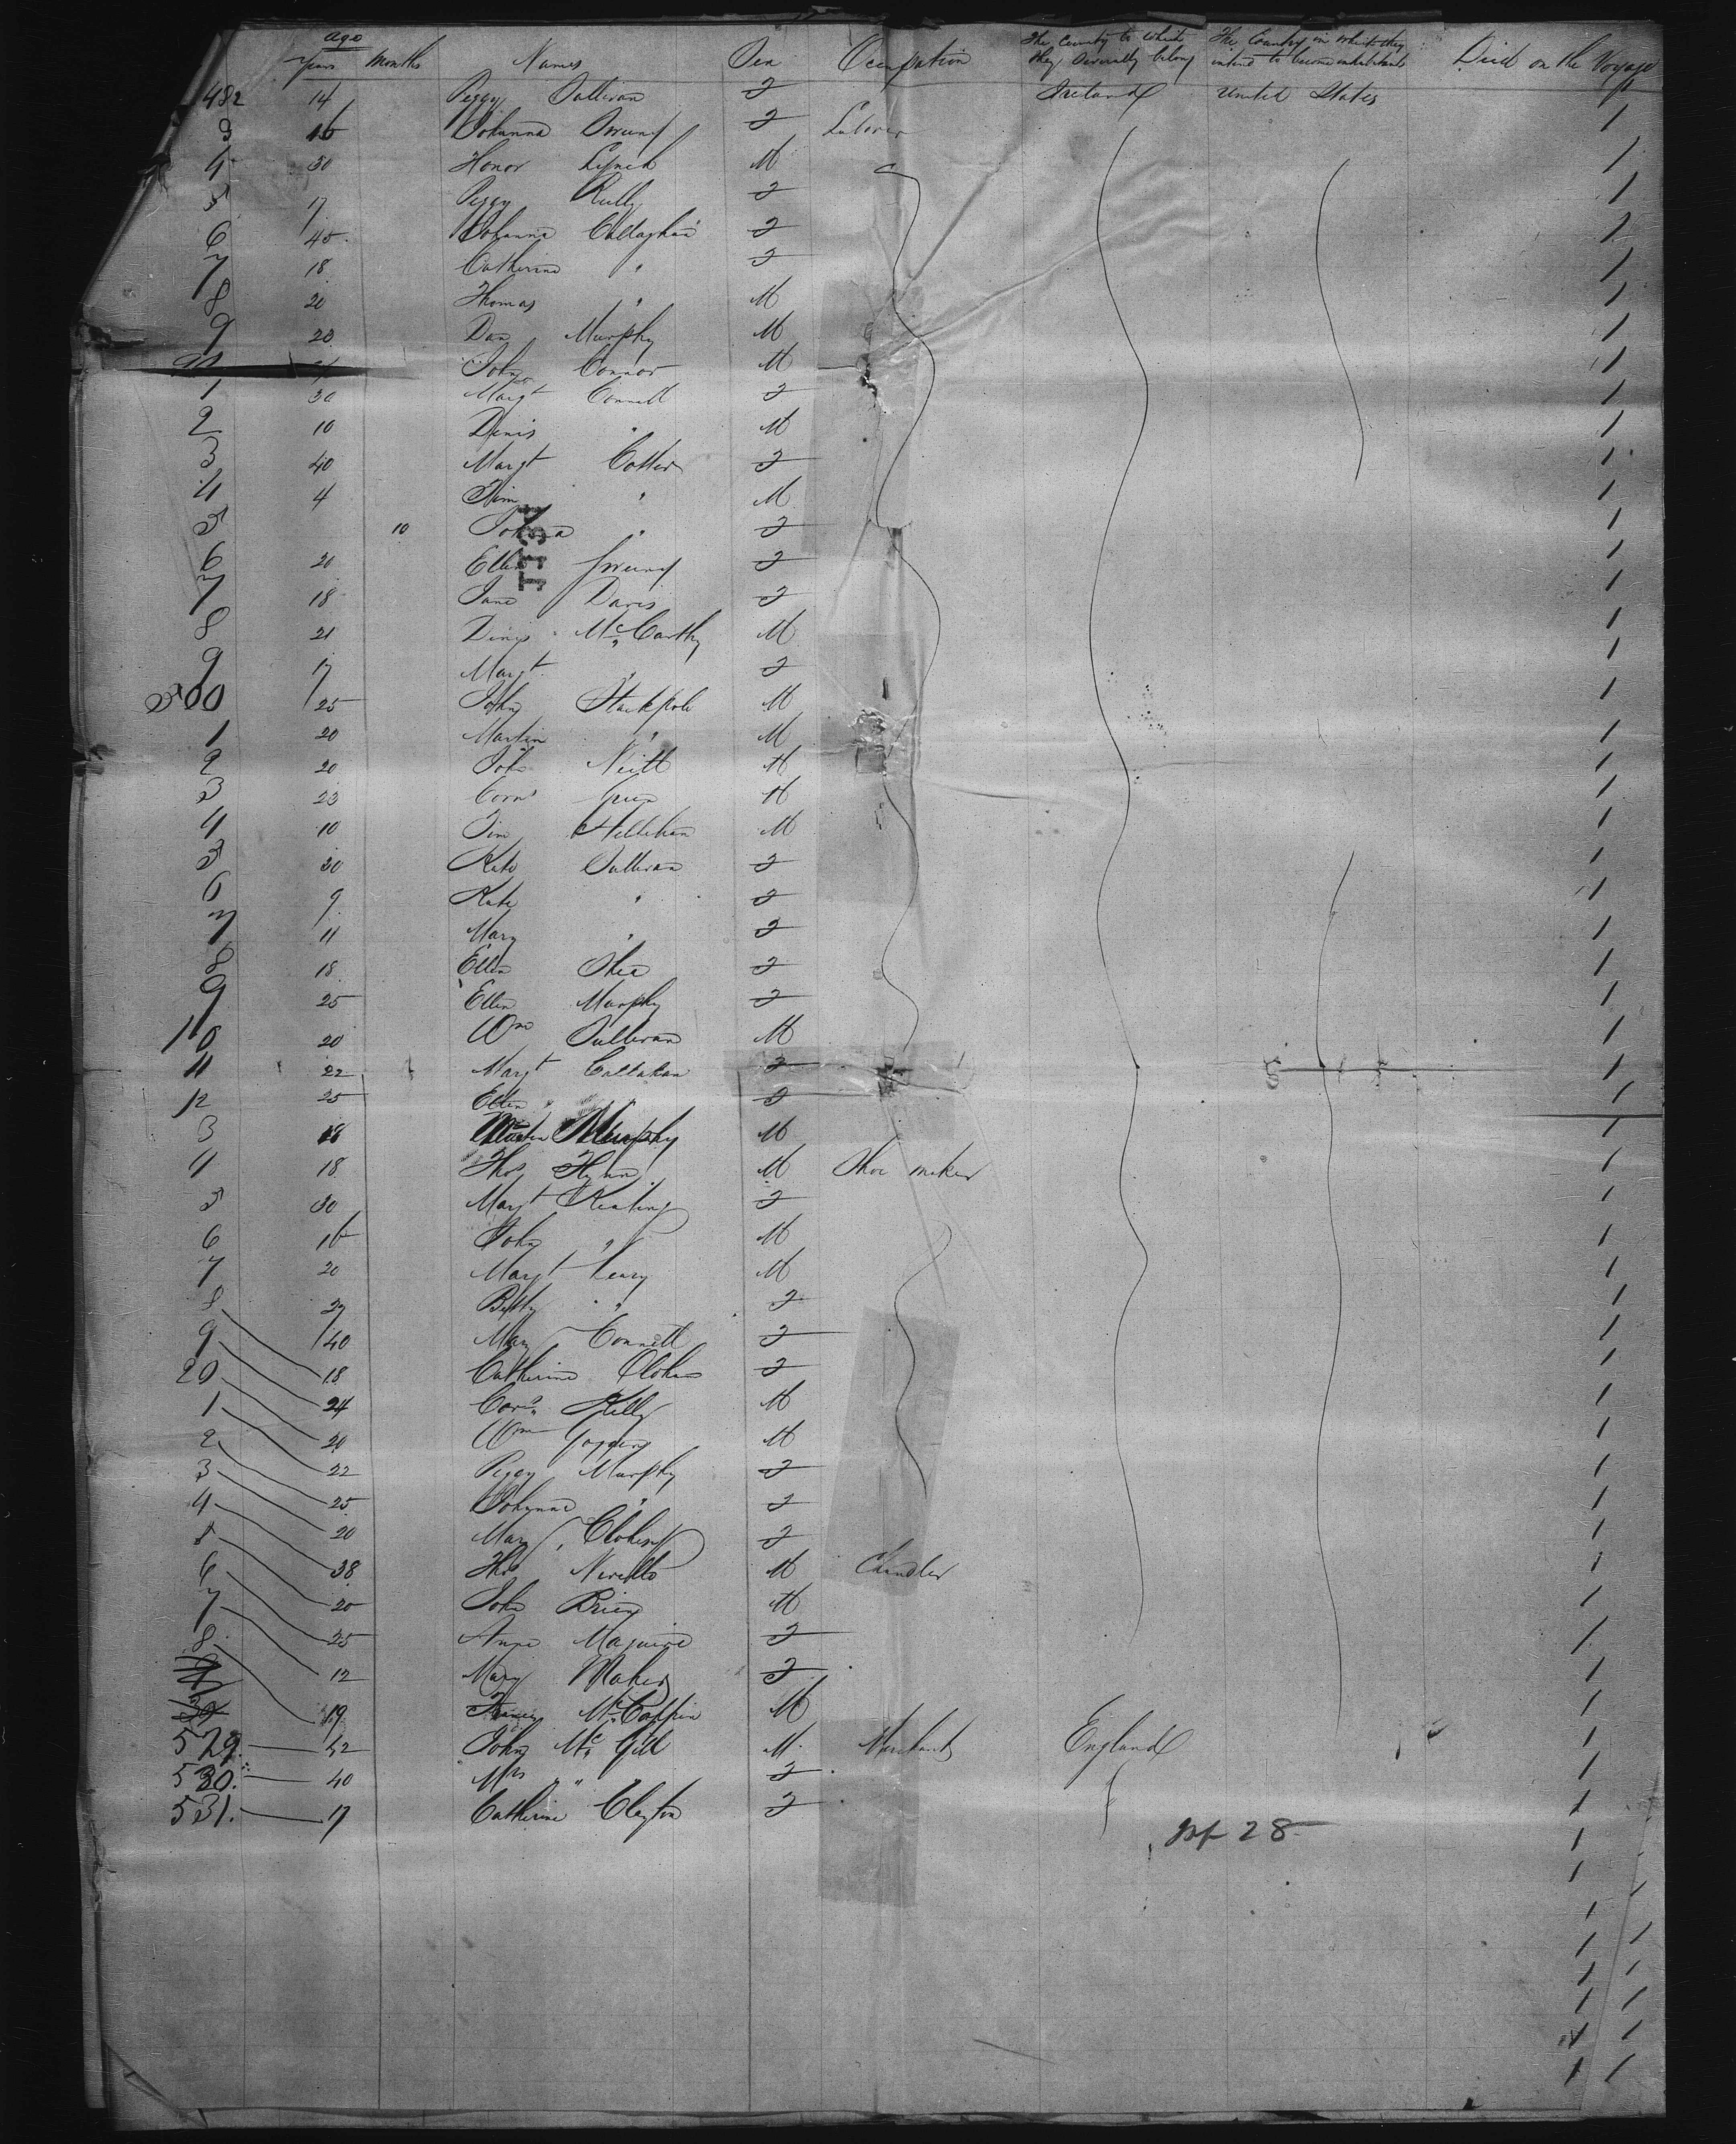 Age
Years Months Names Sex Occupation The Country to which they severally belong The Country in which they intend to become inhabitants Died on the Voyage
482 14 Peggy Sullivan F Ireland United States
3 16 Johanna F Laborer
4 30 Honor Lynch M
5 17 Peggy Kelly F
6 45 Johanna Callaghan F
7 18 Catherine " F
8 20 Thomas " M
9 20 Dan Murphy M
90 John Connor M
1 30 Margt Connell F
2 10 Denis " M
3 40 Margt Cotter F
4 4 Tim " M
5 10 Johana " F
6 20 Ellen F
7 18 Jane Davis F
8 21 Denis McCarthy M
9 17 Margt " F
500 25 John Stackpole M
1 20 Martin " M
2 20 John Neill M
3 23 Corns M
4 10 Tim M
5 30 Kate Sullivan F
6 9 Kate " F
7 11 Mary " F
8 18 Ellen Shea F
9 25 Ellen Murphy F
10 20 Wm Sullivan M
11 22 Margt Callahan F
12 25 Ellen " F
3 18 Murphy M
4 18 Thos Flynn M Shoe maker
5 30 Margt Keating F
6 16 John " M
7 20 Margt Leary M
8 27 Betty " F
9 40 Mary Connell F
20 18 Catherine F
1 24 Corns Kelly M
2 20 Wm M
3 22 Peggy Murphy F
4 25 Johanna " F
5 20 Mary F
6 38 Thos M Chandler
7 20 John Brien M
8 25 Anne Maguire F
12 Mary Maher F
19 M
529. 42 John McGill M. Merchant England
530. 40 Mrs " " F
531. 17 Catherine Clayton F
28